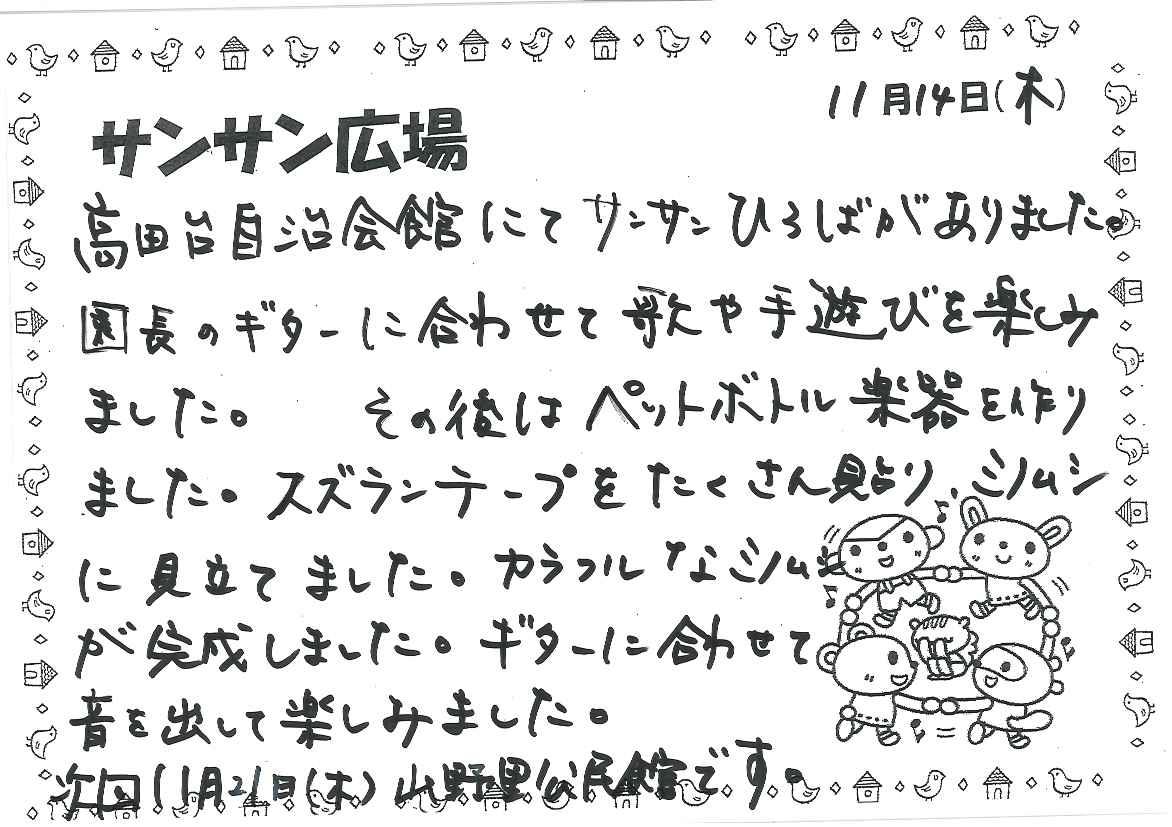 11月14日(木)
サンサン広場
高田台自治会館にてサンサンひろばがありました。
園長のギターに合わせて歌や手遊びを楽しみ
ました。 その後はペットボトル楽器を作り
ました。スズランテープをたくさん貼り、ミノムシ
に見立てました。カラフルなミノムシ
が完成しました。ギターに合わせて
音を出して楽しみました。
次回11月21日(木)山野里公民館です。